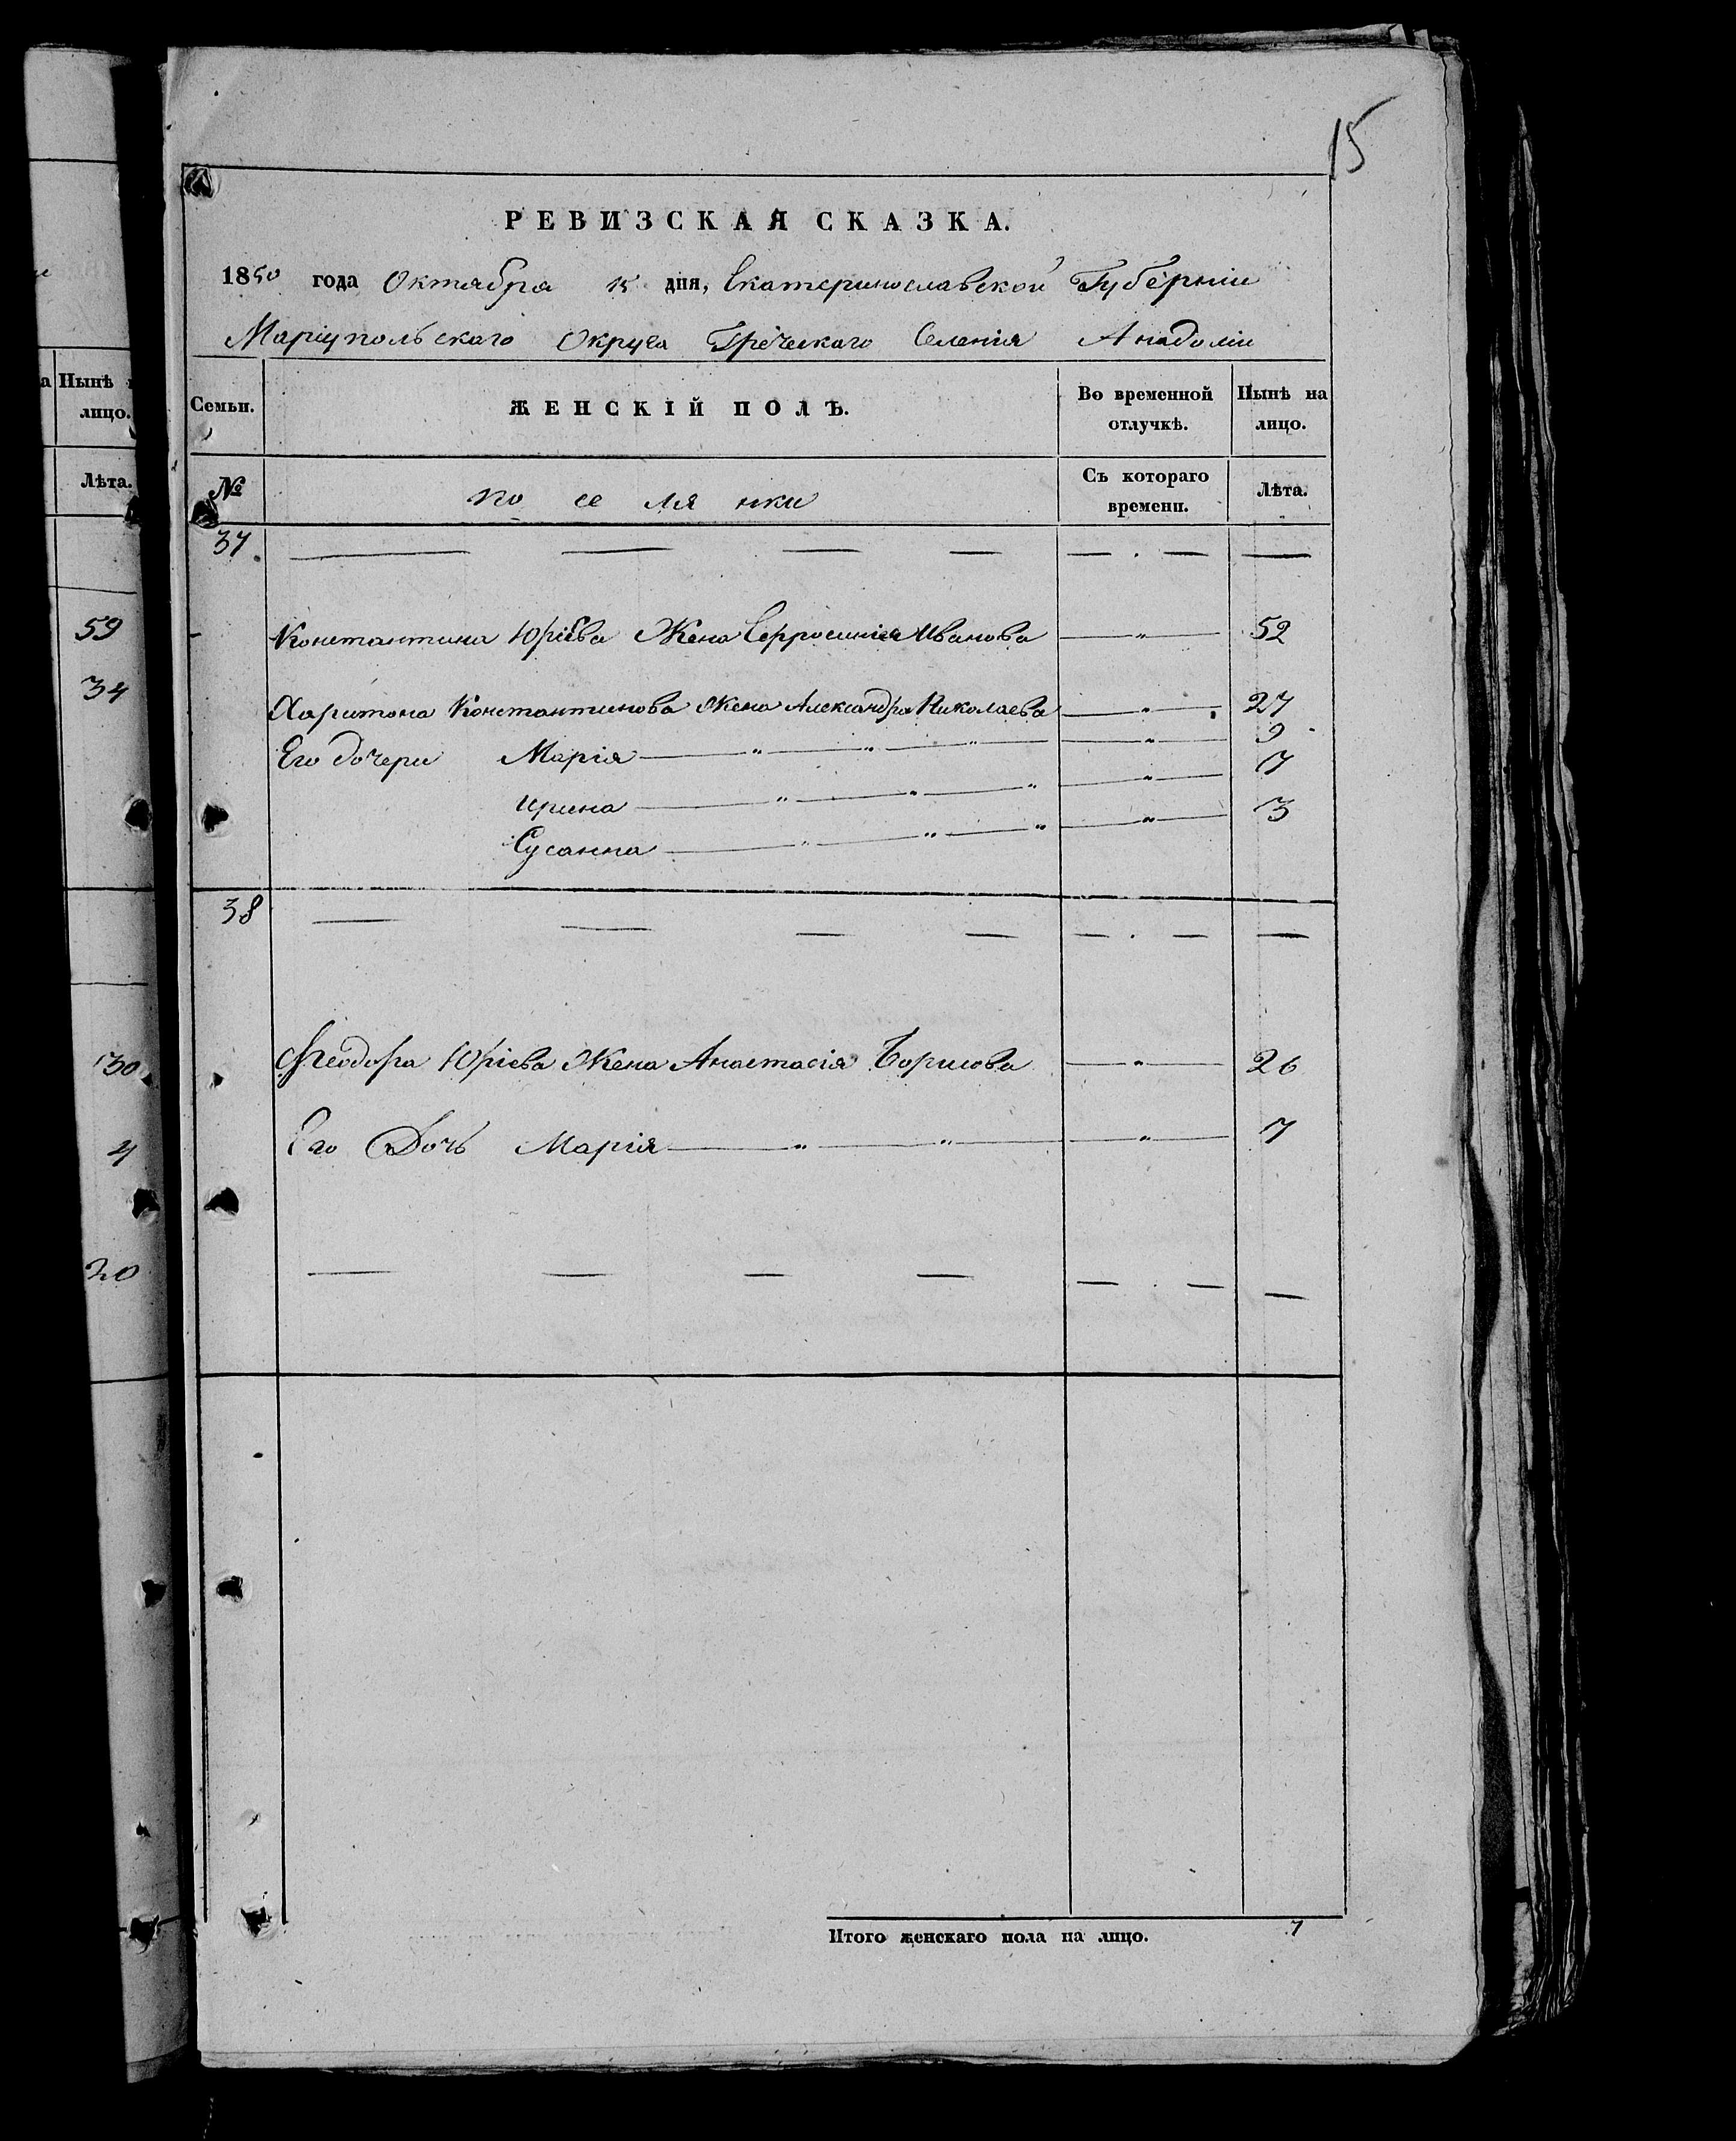 15
РЕВИЗСКАЯ СКАЗКА.
1850 года Октября 15 дня, Екатеринославской Губерніи
Маріупольскаго Округа Греческаго Селенія Анадоліи
а Нынѣ
лицо.
Лѣта.
59
34
30
4
20
Семьи.
ЖЕНСКІЙ ПОЛЪ.
Во временной отлучкѣ.
Нынѣ на лицо.
№
поселянки
Съ котораго времени.
Лѣта.
37.
Константина Юріева Жена Ефросинія Иванова — " — 52
Харитона Константинова Жена Александра Николаева — " — 27
Его дочери Марія — " — " — " — " — 9
Ирина — " — " — " — " — 7
Сусанна — " — " — " — " — 3
38
Феодора Юріева Жена Анастасія Борисова — " — 26
Его Дочь Марія — " — " — " — 7
Итого женскаго пола на лицо. 7